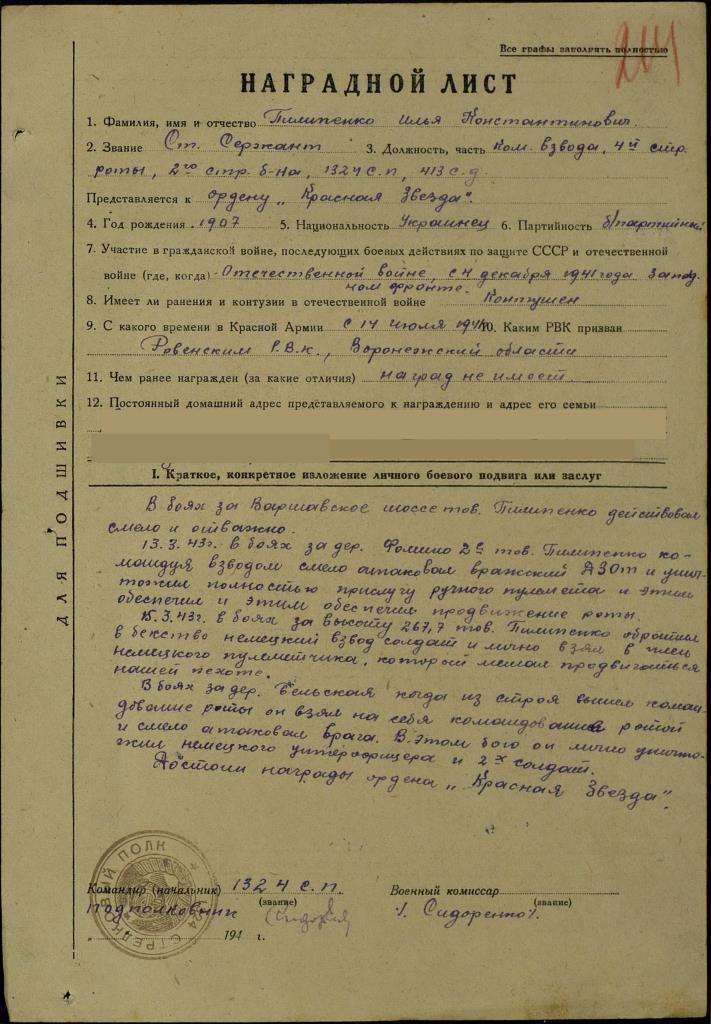 Все графы заполнить полностью
204
НАГРАДНОЙ ЛИСТ
1. Фамилия, имя и отчество Пилипенко Илья Константинович.
2. Звание Ст. Сержант 3. Должность, часть Ком. взвода, 4й стр.
роты, 2го стр. б-на, 1324 с.п, 413 с.д.
Представляется к ордену „Красная Звезда".
4. Год рождения 1907 5. Национальность Украинец 6. Партийность б/партийный
7. Участие в гражданской войне, последующих боевых действиях по защите СССР и отечественной
войне (где, когда) - Отечественной войне, с 4 декабря 1941 года Запад
ном фронте.
8. Имеет ли ранения и контузии в отечественной войне Контужен
9. С какого времени в Красной Армии с 14 июля 194 10. Каким РВК призван
Ровенским Р.В.К., Воронежский области
11. Чем ранее награжден (за какие отличия) наград не имеет.
12. Постоянный домашний адрес представляемого к награждению и адрес его семьи
I. Краткое, конкретное изложение личного боевого подвига или заслуг
В боях за Варшавское шоссе тов. Пилипенко действовал
смело и отважно.
13.3.43г. в боях за дер. Фомино 2е тов. Пилипенко ко-
мандуя взводом смело атаковал вражский ДЗОт и унич-
тожил полностью прислугу ручного пулемета и этим
обеспечил и этим обеспечил продвижение роты.
15.3.43г. в боях за высоту 267,7 тов. Пилипенко обратил
в бекство немецкий взвод солдат и лично взял в плен
немецкого пулеметчика, который мешал продвигаться
нашей пехоте.
В боях за дер. Бельская когда из строя вышел коман-
дование роты он взял на себя командование ротой
и смело атаковал врага. В этом бою он лично уничто-
жил немецкого унтерофицера и 2х солдат.
Достоин награды ордена „Красная Звезда".
Командир (начальник) 1324 с.п.
Военный комиссар
(звание)
(звание)
подполковник
/. Сидоренко/.
194 г.
ДЛЯ ПОДШИВКИ
1324 СТРЕЛКОВЫЙ ПОЛК